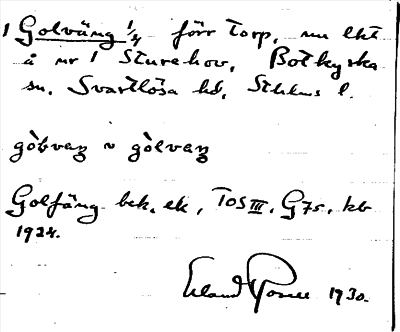 1 Golväng 1/4 förr torp, nu lkt
å nr 1 Sturehov, Botkyrka
sn, Svartlösa hd, Sthlms l.
gòlvaŋ ~ gòlvæŋ
Golfäng bek. ek, TOS III. G7s. kb
1924.
Erland Rosell 1930.